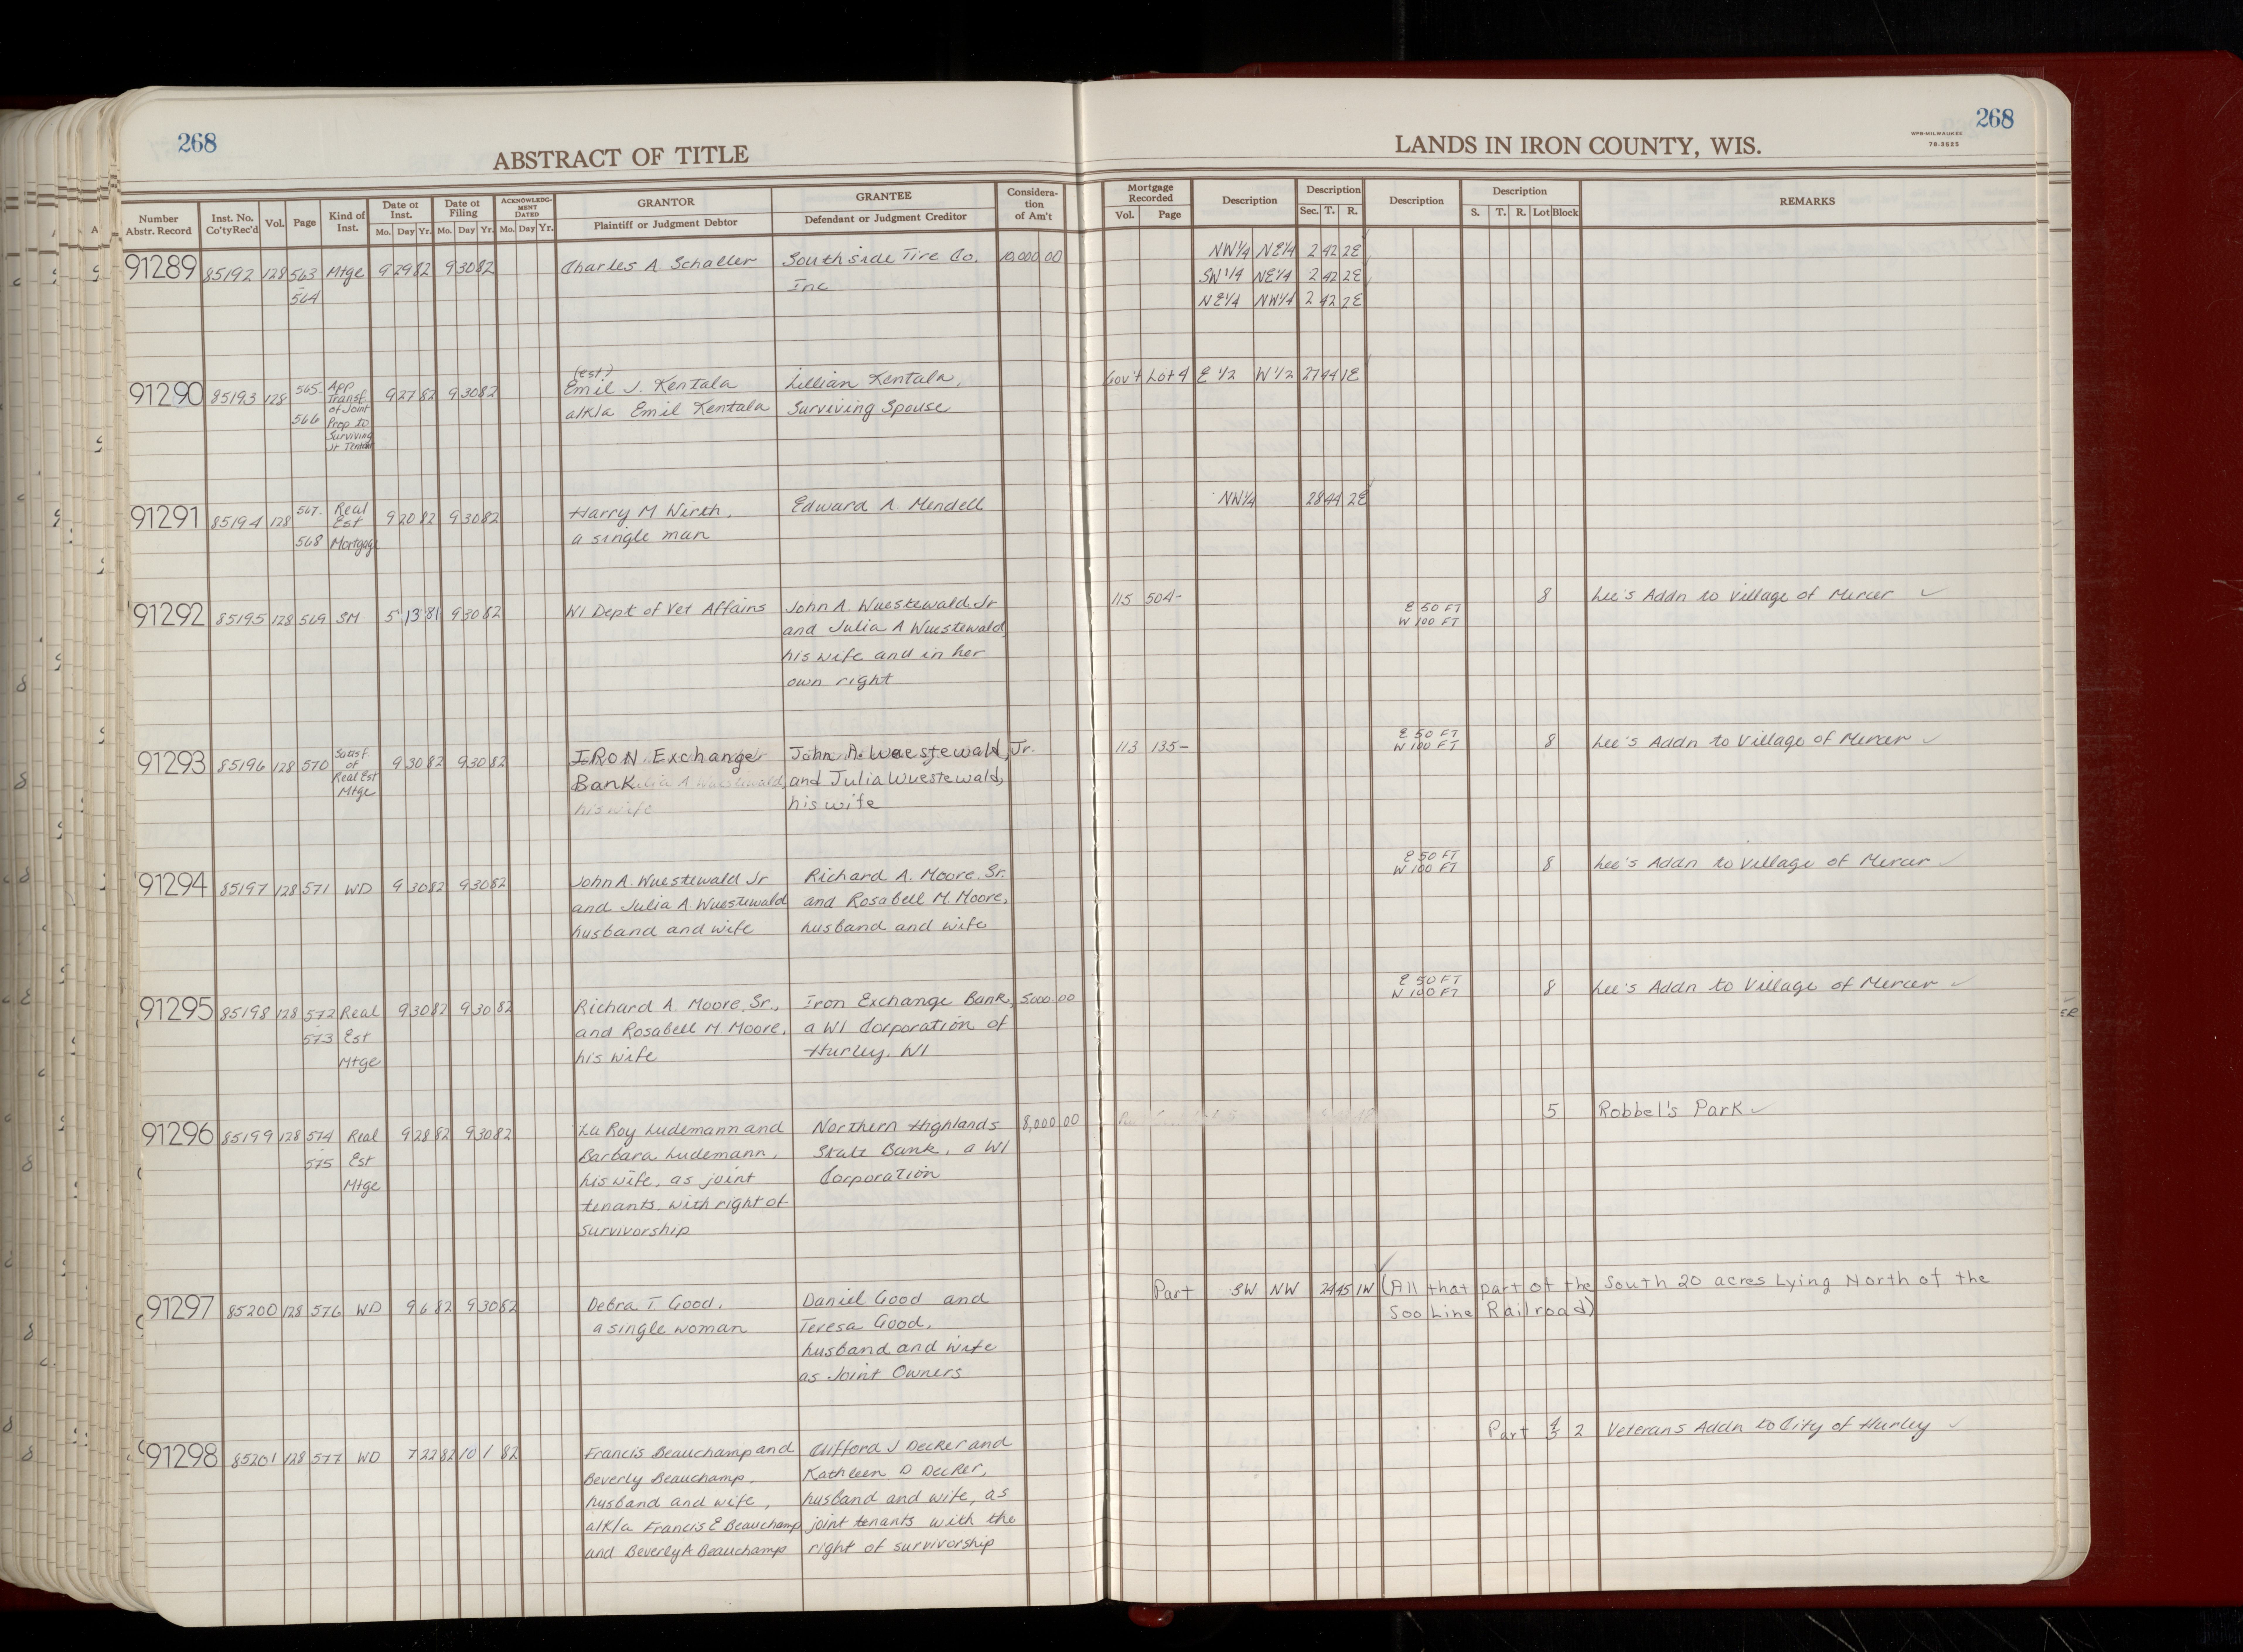 268
268
ABSTRACT OF TITLE
LANDS IN IRON COUNTY, WIS.
WPB-MILWAUKEE
78-3525
Number Abstr. Record | Inst. No. Co'ty Rec'd | Vol. | Page | Kind of Inst. | Date of Inst. Mo. Day Yr. | Date of Filing Mo. Day Yr. | ACKNOWLEDGMENT DATED Mo. Day Yr. | GRANTOR Plaintiff or Judgment Debtor | GRANTEE Defendant or Judgment Creditor | Consideration of Am't | Mortgage Recorded Vol. Page | Description | Description Sec. T. R. | Description | Description S. T. R. Lot Block | REMARKS
91289 85192 128 563 Mtge 9 29 82 9 30 82 Charles A Schaller Southside Tire Co, 10,000 00 NW1/4 NE1/4 2 42 2E
- 564 Inc SW1/4 NE1/4 2 42 2E
NE1/4 NW1/4 2 42 2E
91290 85193 128 565- App 9 27 82 9 30 82 (est) Emil J. Kentala Lillian Kentala, Gov't Lot 4 E 1/2 W 1/2 27 44 1E
566 Transf. a/k/a Emil Kentala Surviving Spouse
of Joint
Prop to
Surviving
Jt Tenant
91291 85194 128 567- Real 9 20 82 9 30 82 Harry M Wirth, Edward A. Mendell NW1/4 28 44 2E
Est a single man
568 Mortgage
91292 85195 128 569 SM 5 13 81 9 30 82 WI Dept of Vet Affairs John A. Wuestewald Jr 115 504- E 50 FT 8 Lee's Addn to Village of Mercer ✓
and Julia A Wuestewald, W 100 FT
his wife and in her
own right
91293 85196 128 570 Satisf. 9 30 82 9 30 82 IRON Exchange John A. Wuestewald, Jr. 113 135- E 50 FT 8 Lee's Addn to Village of Mercer ✓
of Bank and Julia Wuestewald, W 100 FT
Real Est his wife his wife
Mtge
91294 85197 128 571 WD 9 30 82 9 30 82 John A. Wuestewald Jr Richard A. Moore Sr. E 50 FT 8 Lee's Addn to Village of Mercer ✓
and Julia A Wuestewald and Rosabell M. Moore, W 100 FT
husband and wife husband and wife
91295 85198 128 572 Real 9 30 82 9 30 82 Richard A. Moore Sr., Iron Exchange Bank, 5,000 00 E 50 FT 8 Lee's Addn to Village of Mercer ✓
- 573 Est and Rosabell M Moore, a WI Corporation of W 100 FT
Mtge his wife Hurley, WI
91296 85199 128 574 Real 9 28 82 9 30 82 La Roy Ludemann and Northern Highlands 8,000 00 5 Robbel's Park ✓
- 575 Est Barbara Ludemann, State Bank, a WI
Mtge his wife, as joint Corporation
tenants with right of
survivorship
91297 85200 128 576 WD 9 6 82 9 30 82 Debra T Good, Daniel Good and Part SW NW 24 45 1W (All that part of the South 20 acres Lying North of the
a single woman Teresa Good, Soo Line Railroad)
husband and wife
as Joint Owners
91298 85201 128 577 WD 7 22 82 10 1 82 Francis Beauchamp and Clifford J Decker and Part 4 5 2 Veterans Addn to City of Hurley ✓
Beverly Beauchamp, Kathleen D Decker,
husband and wife, husband and wife, as
a/k/a Francis E Beauchamp joint tenants with the
and Beverly A Beauchamp right of survivorship